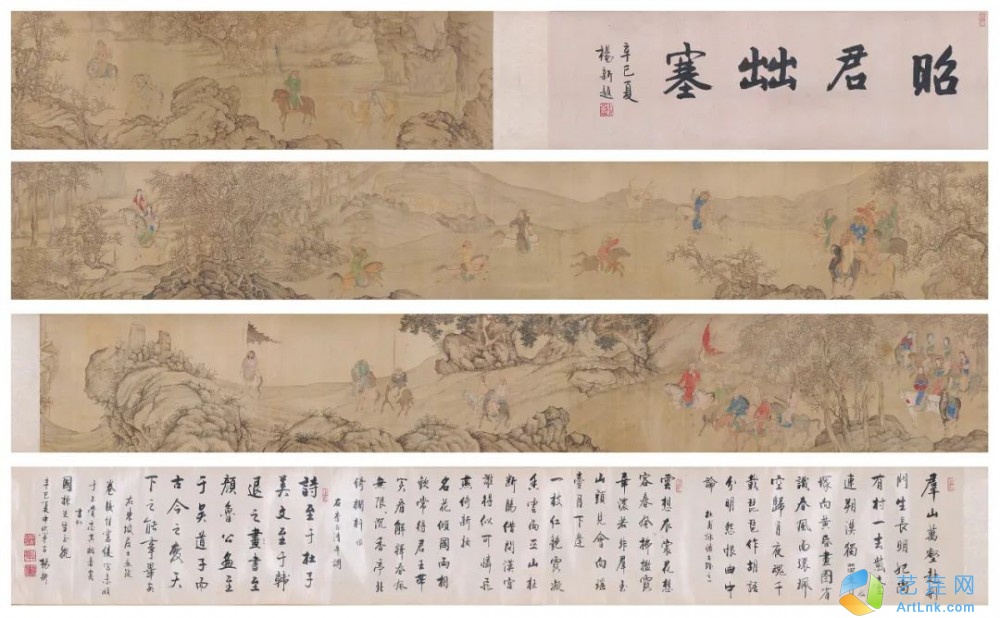 昭君出塞
辛巳夏
楊新題
群山萬壑赴荊
門生長明妃尚
有村一去紫臺
連朔漠獨留
塚向黃昏畫圖省
識春風面環珮
空歸月夜魂千
載琵琶作胡語
分明怨恨曲中
論
杜甫詠懷古跡之一
雲想衣裳花想
容春風拂檻露
華濃若非群玉
山頭見會向瑤
臺月下逢
一枝紅艷露凝
香雲雨巫山枉
斷腸借問漢宮
誰得似可憐飛
燕倚新妝
名花傾國兩相
歡常得君王帶
笑看解釋春風
無限沉香亭北
倚欄杆
右李白清平調
詩至于杜子
美文至于韓
退之書至
顏魯公畫至
于吳道子而
古今之變天
下之能事畢矣
右東坡居士
辛巳夏 楊新
艺连网
ArtLnk.com